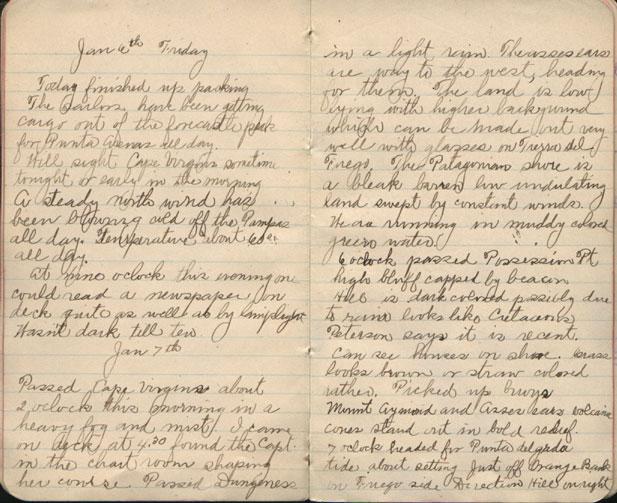 Jan 6th Friday
Today finished up packing
The Sailors have been getting
cargo out of the forecastle peak
for Punta Arenas all day.
Will sight Cape Virgins sometime
tonight or early in the morning
A steady north wind has
been blowing cold off the Pampas
all day. Temperature about 60°
all day.
At nine oclock this evening one
could read a newspaper on
deck quite as well as by lamplight
Wasn't dark till ten
Jan 7th
Passed Cape Virgins about
2 oclock this morning in a
heavy fog and mist. I came
on deck at 4.30 found the Capt.
in the chart room shaping
her course. Passed Dungeness
in a light rain. The asses ears
are way to the west, heading
for them. The land is low
lying with higher background
which can be made out very
well with glasses on Tierra del
Fuego. The Patagonian shore is
a bleak barren low undulating
land swept by constant winds.
We are running in muddy colored
green water.
6 oclock passed Possession Pt
high bluff capped by beacon
Hill is dark colored possibly due
to rain looks like Cretaceous
Peterson says it is recent.
Can see houses on shore. Grass
looks brown or straw colored
rather. Picked up buoys
Mount Aymond and Asses ears volcanic
cones stand out in bold relief.
7 oclock headed for Punta delgada
tide about setting Just off Orange Bank
on Fuego side Direction Hill on right